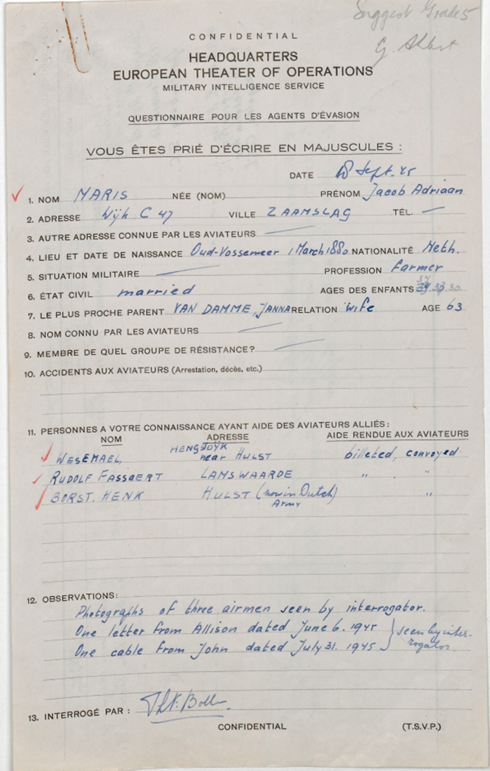 Suggest Grade 5
G. Albert
CONFIDENTIAL
HEADQUARTERS
EUROPEAN THEATER OF OPERATIONS
MILITARY INTELLIGENCE SERVICE
QUESTIONNAIRE POUR LES AGENTS D'ÉVASION
VOUS ÊTES PRIÉ D'ÉCRIRE EN MAJUSCULES :
DATE Sept. 45
1. NOM MARIS NÉE (NOM) PRÉNOM Jacob Adriaan
2. ADRESSE Wijk C 47 VILLE ZAAMSLAG TÉL —
3. AUTRE ADRESSE CONNUE PAR LES AVIATEURS —
4. LIEU ET DATE DE NAISSANCE Oud-Vossemeer 1 March 1880 NATIONALITÉ Neth.
5. SITUATION MILITAIRE — PROFESSION Farmer
6. ÉTAT CIVIL married AGES DES ENFANTS 30
7. LE PLUS PROCHE PARENT VAN DAMME, JANNA RELATION wife AGE 63
8. NOM CONNU PAR LES AVIATEURS —
9. MEMBRE DE QUEL GROUPE DE RÉSISTANCE? —
10. ACCIDENTS AUX AVIATEURS (Arrestation, décès, etc.)
11. PERSONNES A VOTRE CONNAISSANCE AYANT AIDE DES AVIATEURS ALLIÉS:
NOM ADRESSE AIDE RENDUE AUX AVIATEURS
WESEMAEL, HENGSTDYK near HULST billeted, convoyed
RUDOLF FASSAERT LAMSWAARDE " "
BORST, HENK HULST (now in Dutch Army) "
12. OBSERVATIONS:
Photographs of three airmen seen by interrogator.
One letter from Allison dated June 6. 1945 } seen by inter-
One cable from John dated July 31. 1945 } rogator
13. INTERROGÉ PAR :
CONFIDENTIAL (T.S.V.P.)